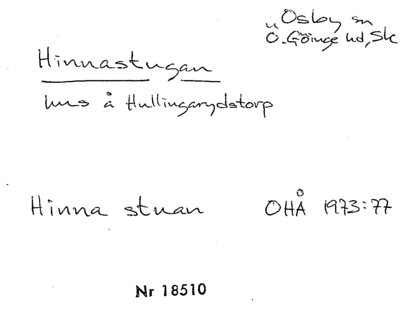 Osby sn
Ö. Göinge hd, Sk
Hinnastugan
hus å Hullingarydstorp
Hinna stuan OHÅ 1973:77
Nr 18510